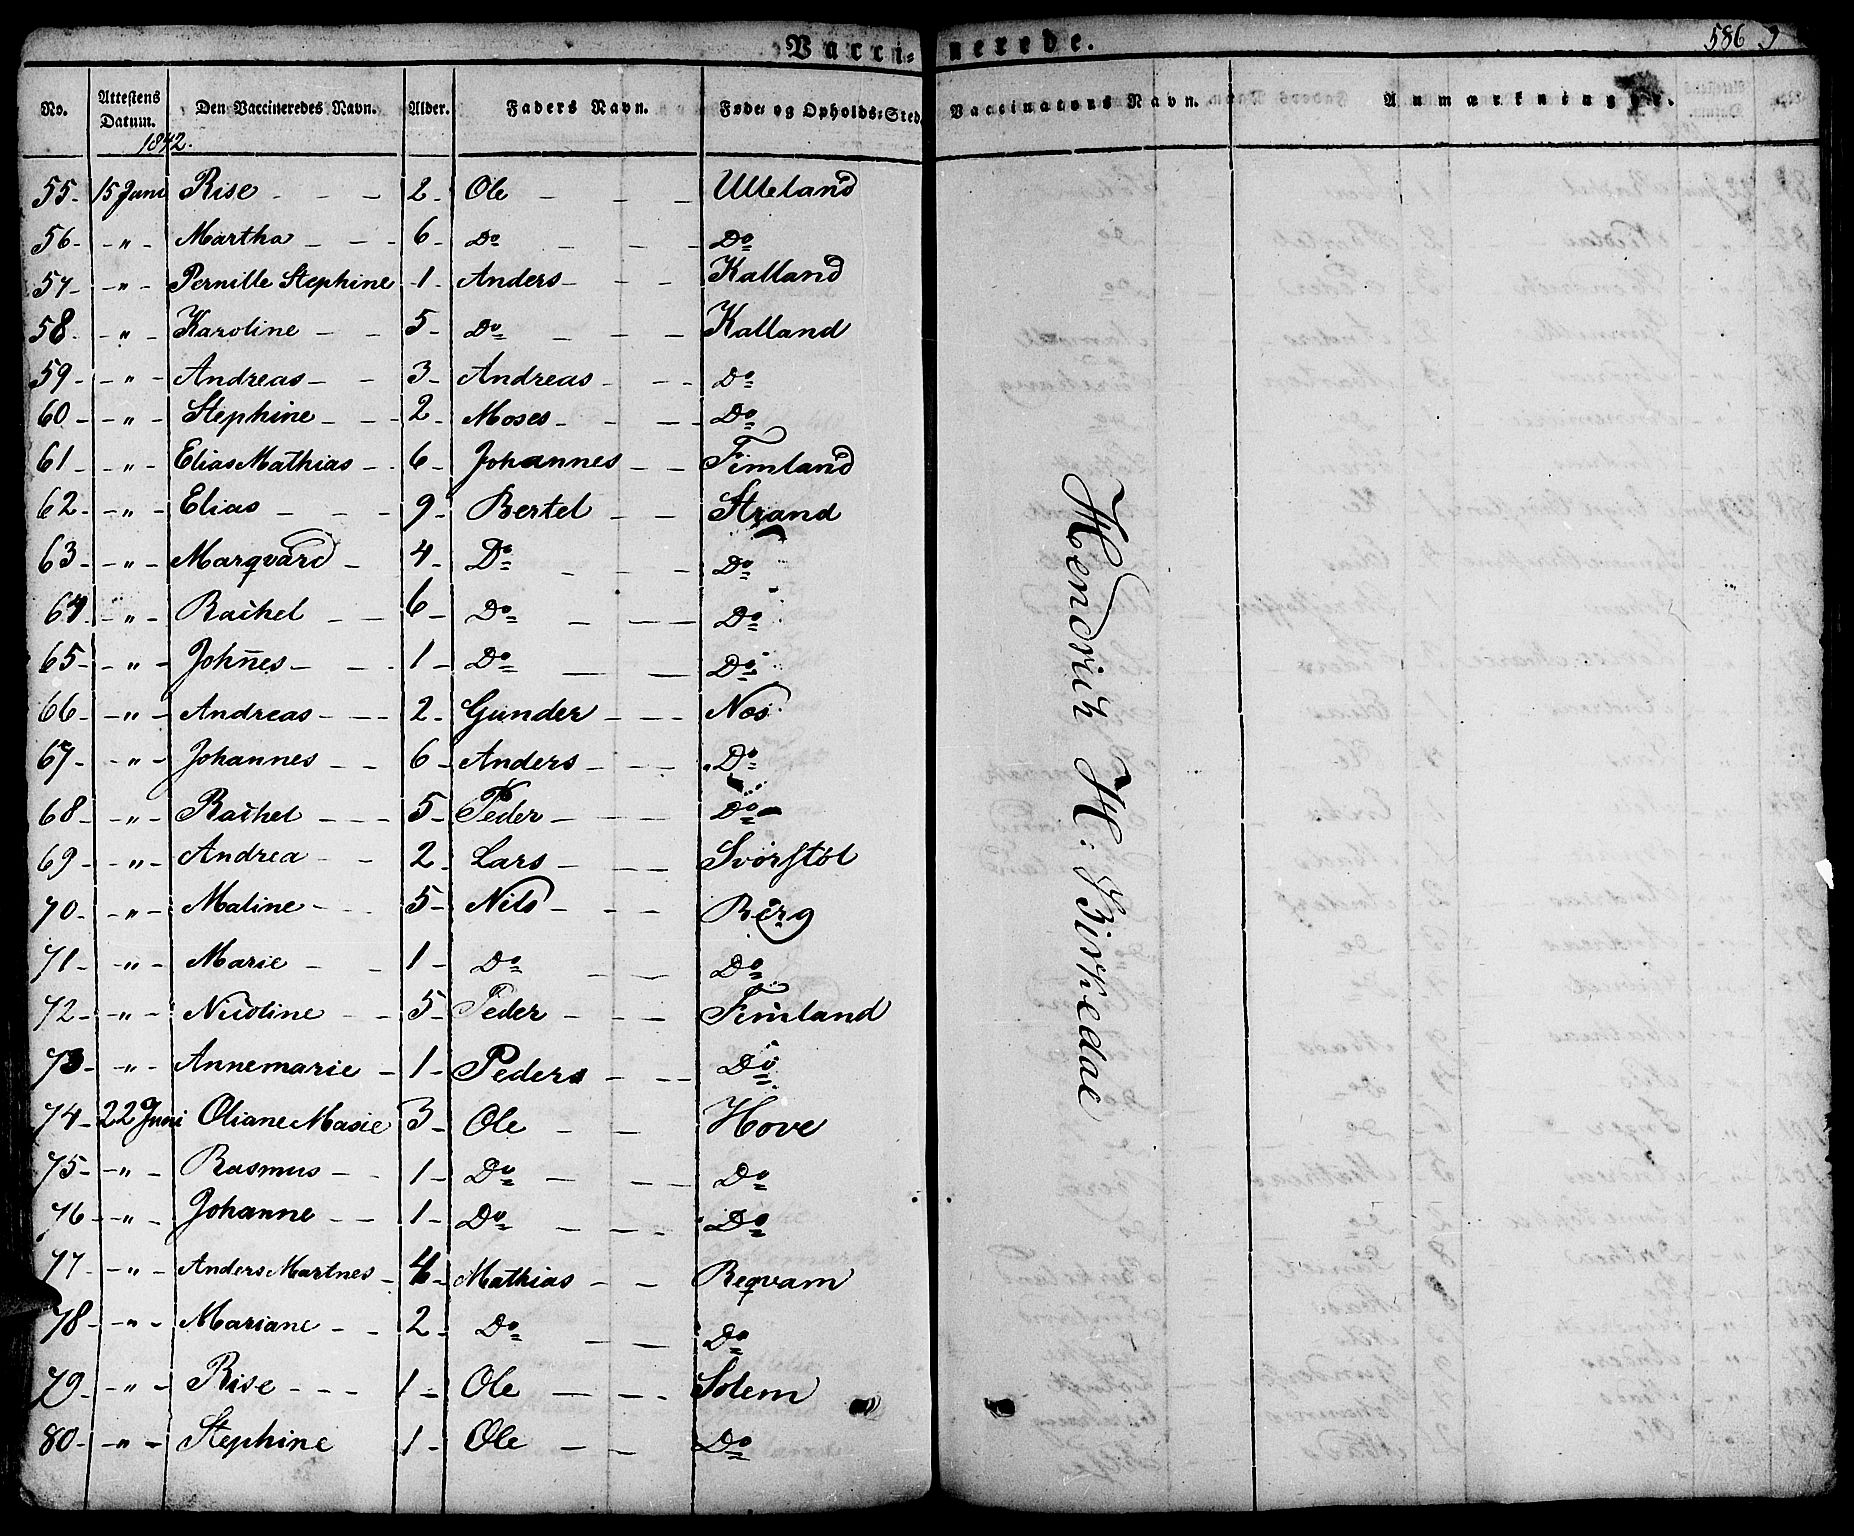 Vacci- nerede. 586 9
No. Attestens Datum. Den Vaccineredes Navn. Alder. Faders Navn. Føde- og Opholds-Sted. Vaccinatorns Navn. Anmærkninger.
1842.
55- 15 Juni Rise - - - 2- Ole - - - Ulleland
56- -"- Martha - - - 6- Do - - - Do
57- -"- Pernille Stephine 1- Anders- - - Kalland
58- -"- Karoline - - 5- Do - - - Kalland
59- -"- Andreas- - 3- Andreas- - - Do
60- -"- Stephine - - - 2- Moses- - - - Do
61- -"- Elias Mathias - - 6- Johannes - - Fimland
62- -"- Elias - - - 9- Bertel - - Strand
63- -"- Marqvard - 4- Do - - - Do
64- -"- Rachel - - 6- Do - - - Do
65- -"- Johñes- - - 1- Do - - - Do
66- -"- Andreas- - - 2- Gunder - - - Nøs
67- -"- Johannes - - 6- Anders - - - Do
68- -"- Rachel - - - 5- Peder - - - Do
69- -"- Andrea - - 2- Lars - - - Svørstøl
70- -"- Maline - - - 5- Nils - - - Berg
71- -"- Marie - - 1- Do - - Do
72- -"- Nicoline - - 5- Peder - - - Fimland
73- -"- Annemarie - 1- Peders - - - Do
74- 22 Juni Oliane Marie 3- Ole - - Hove
75- -"- Rasmus - - 1- Do - - - Do
76- -"- Johanne - - 1- Do - - - Do
77- -"- Anders Martnes - 4- Mathias - - Reqvam
78- -"- Mariane - - 2- Do - - Do
79- -"- Rise - - - 1- Ole - - - Solem
80- -"- Stephine 1- Ole - - Do
Hendrich H. Birkedal